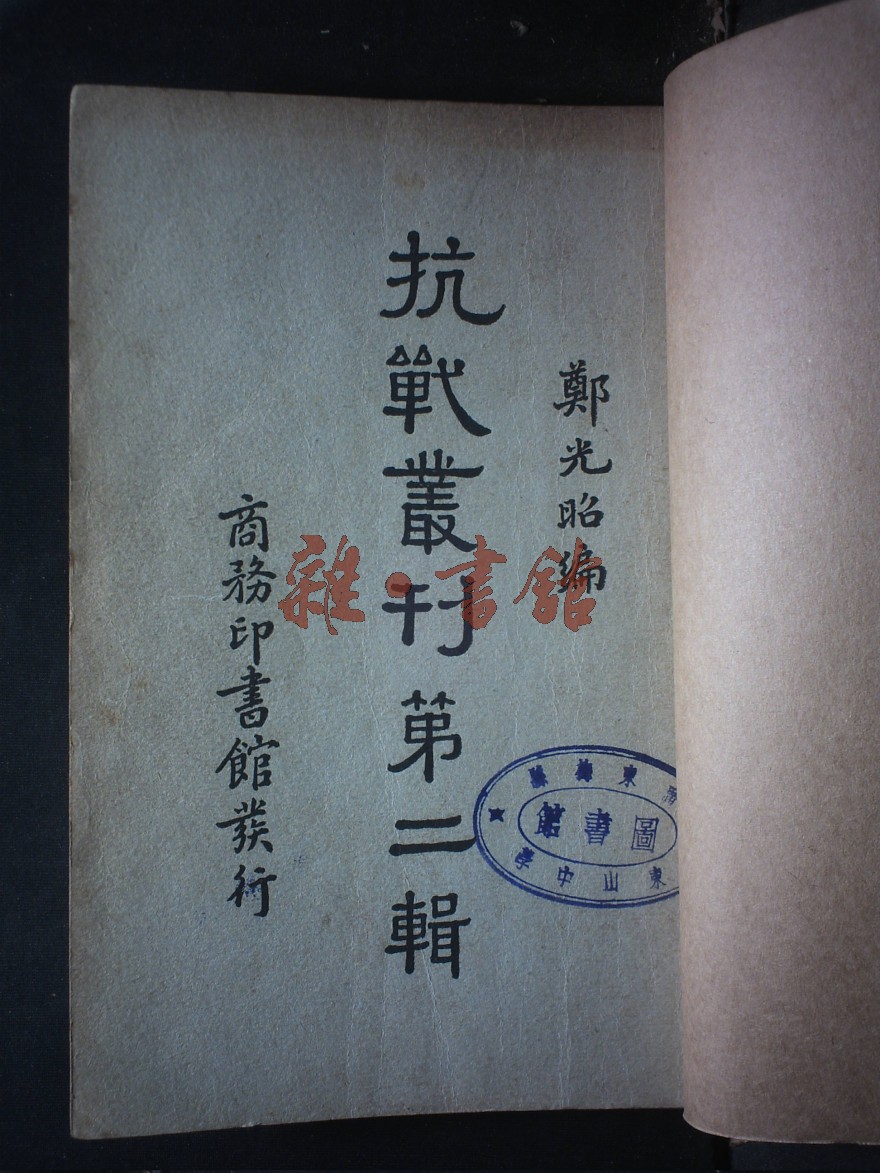 鄭光昭編
抗戰叢刊第二輯
商務印書館發行
雜·書館
東梅縣
圖書館
東山中學